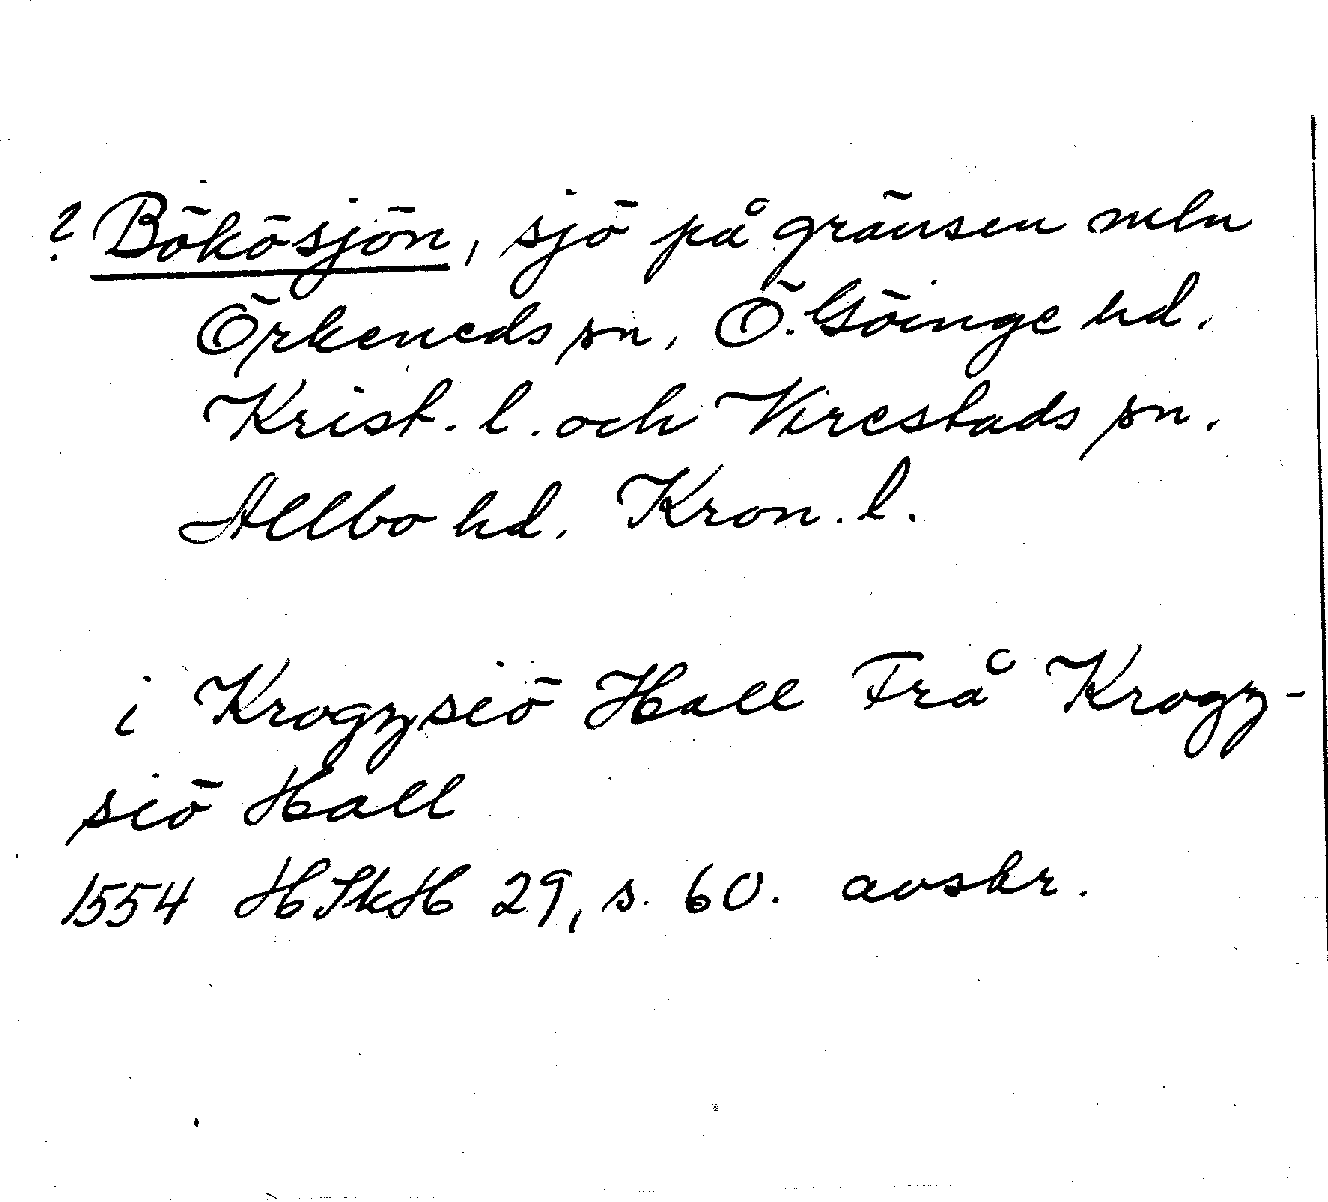 ? Bökösjön, sjö på gränsen mln
Örkeneds sn, Ö. Göinge hd.
Krist. l. och Virestads sn.
Allbo hd. Kron. l.
i Krogzsiö Hall Frå Krogz-
siö Hall
1554 HSkH 29, s. 60. avskr.